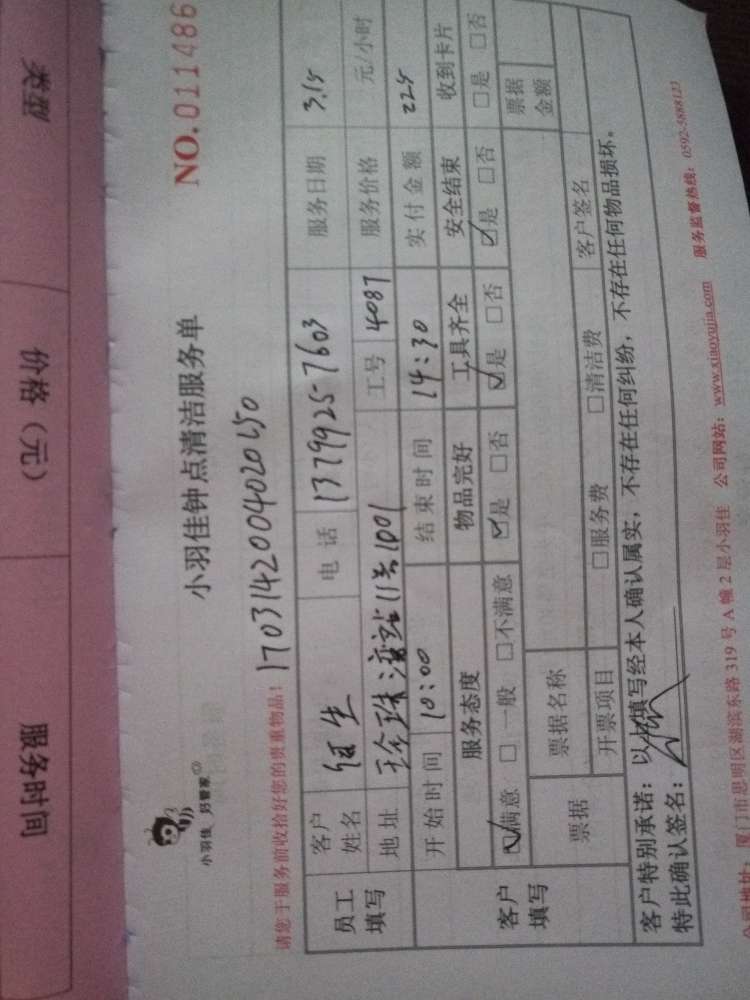 类型
价格（元）
服务时间
小羽佳 好管家
小羽佳钟点清洁服务单
NO.011486
请您于服务前收拾好您的贵重物品！
1703142004020150
员工填写
客户姓名 任生 电话 13799257603 服务日期 3.15
地址 珍珠湾站11号1001 工号 4087 服务价格 元/小时
开始时间 10:00 结束时间 14:30 实付金额 225
客户填写
服务态度 物品完好 工具齐全 安全结束 收到卡片
☑满意 □一般 □不满意 ☑是 □否 ☑是 □否 ☑是 □否 □是 □否
票据 票据名称 票据金额
开票项目 □服务费 □清洁费 客户签名
客户特别承诺：以上填写经本人确认属实，不存在任何纠纷，不存在任何物品损坏。
特此确认签名：
公司地址：厦门市思明区湖滨东路319号A幢2层小羽佳 公司网站：www.xiaoyujia.com 服务监督热线：0592-5888123